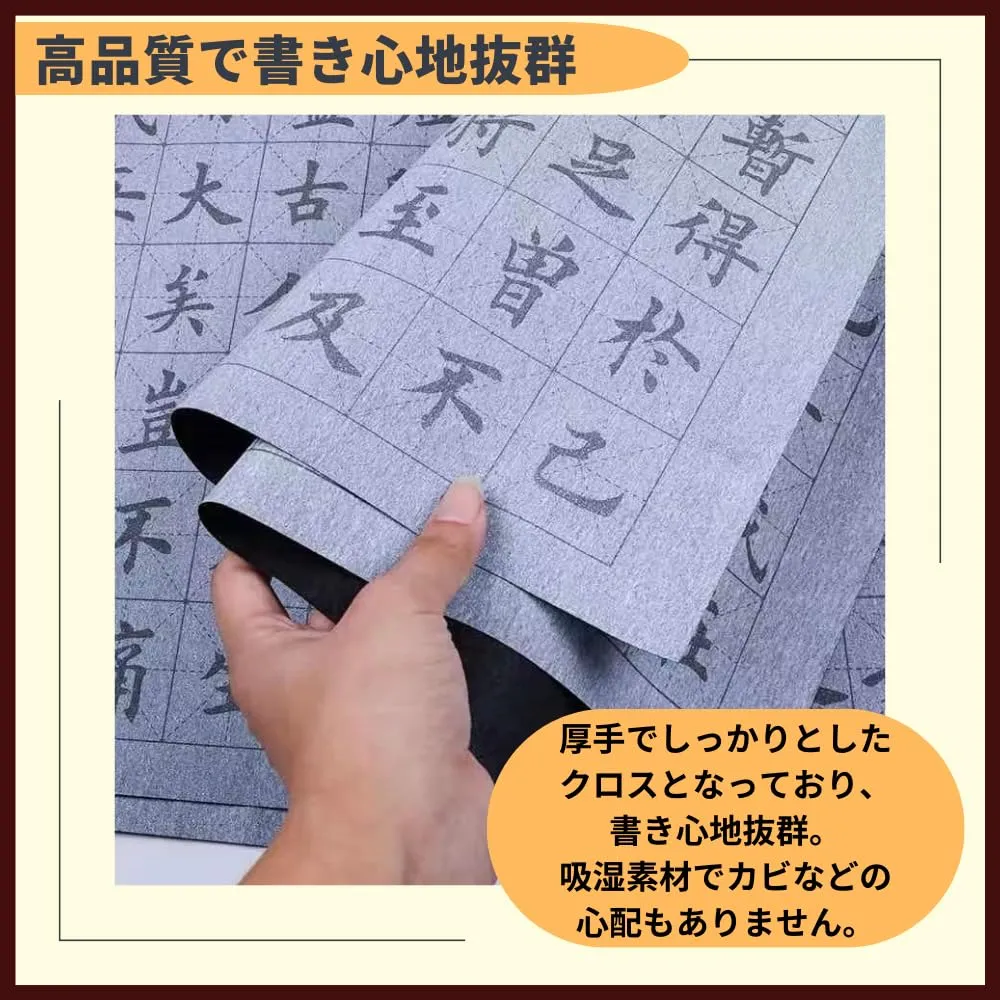 高品質で書き心地抜群
大 古
矣
豈
不
暫 得 於 己
足 曽 不
至 及
厚手でしっかりとした
クロスとなっており、
書き心地抜群。
吸湿素材でカビなどの
心配もありません。